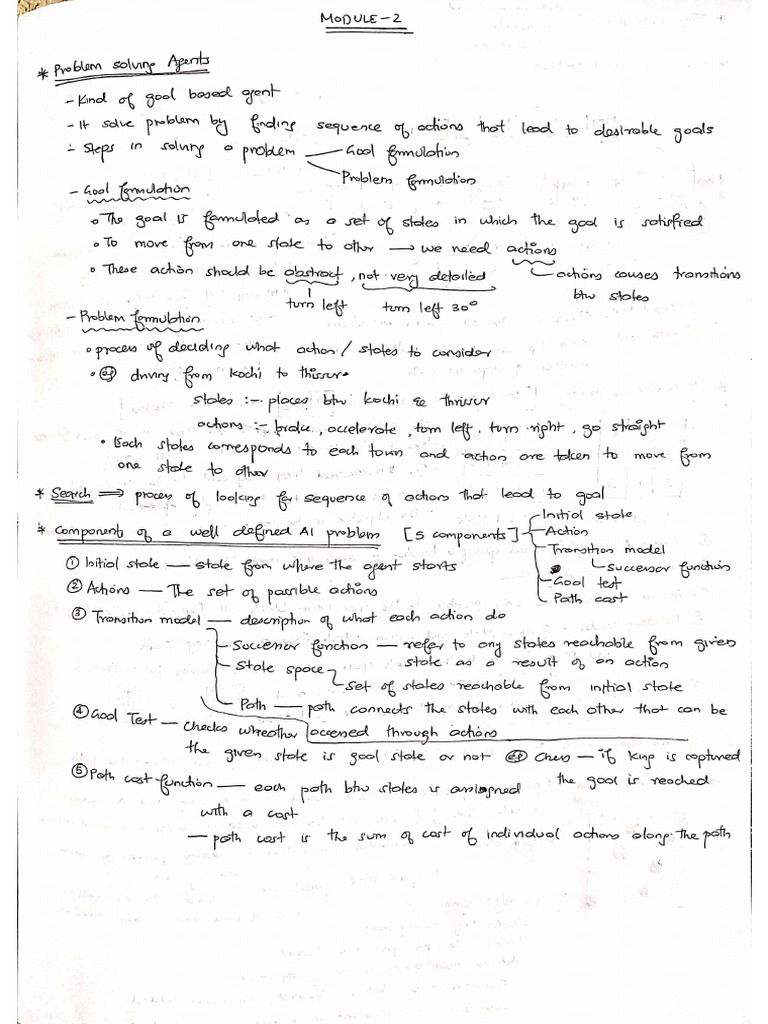 MODULE-2
* Problem solving Agents
- Kind of goal based agent
- It solve problem by finding sequence of actions that lead to desirable goals
- Steps in solving a problem — Goal formulation
Problem formulation
- Goal formulation
o The goal is formulated as a set of states in which the goal is satisfied
o To move from one state to other → we need actions
o These action should be abstract, not very detailed — actions causes transitions
turn left turn left 30° btw states
- Problem formulation
o process of deciding what action / states to consider
o eg driving from Kochi to thissur.
states :- places btw kochi & thrissur
actions :- brake, accelerate, turn left, turn right, go straight
• Each states corresponds to each town and action are taken to move from
one state to other
* Search ⟹ process of looking for sequence of actions that lead to goal
* Component of a well defined AI problem [5 components] - Initial state
- Action
- Transition model
- Successor function
- Goal test
- Path cost
① Initial state — state from where the agent starts
② Actions — The set of possible actions
③ Transition model — description of what each action do
- Successor function — refer to any states reachable from given
state as a result of an action
- State space
set of states reachable from initial state
- Path — path connects the states with each other that can be
accessed through actions
④ Goal Test — checks wheather
the given state is goal state or not eg Chess — if King is captured
the goal is reached
⑤ Path cost function — each path btw states is assigned
with a cost
— path cost is the sum of cost of individual actions along the path